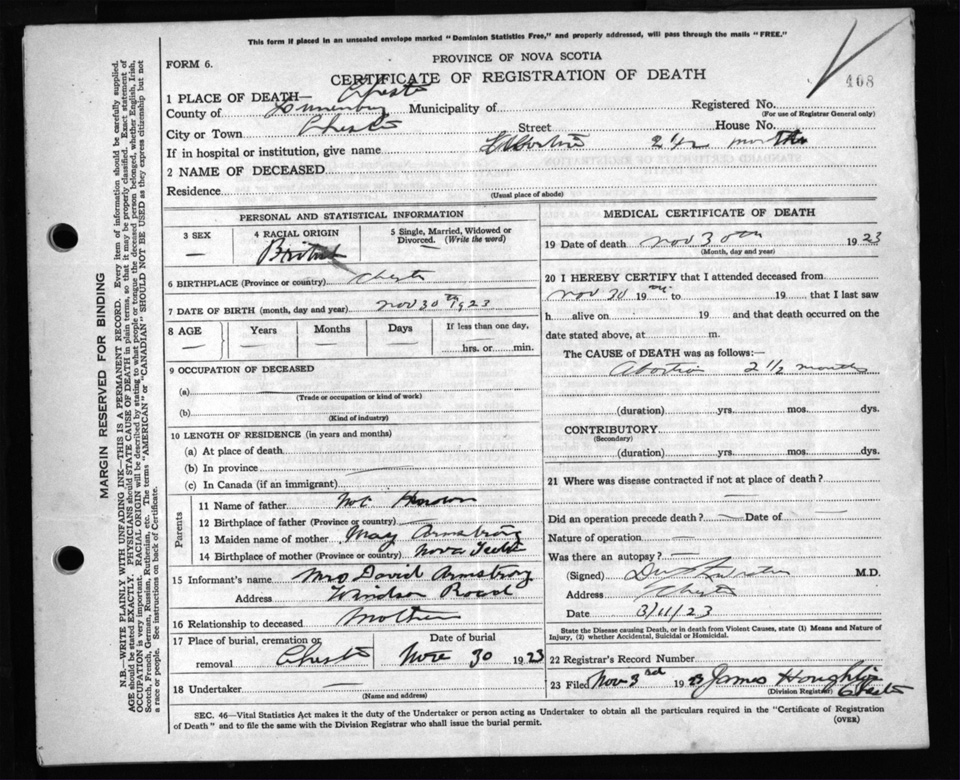 This form if placed in an unsealed envelope marked "Dominion Statistics Free," and properly addressed, will pass through the mails "FREE."
FORM 6.
PROVINCE OF NOVA SCOTIA
CERTIFICATE OF REGISTRATION OF DEATH
408
1 PLACE OF DEATH— Chester
County of Lunenburg Municipality of
Registered No.
(For use of Registrar General only)
City or Town Chester Street House No.
If in hospital or institution, give name Abortion 2 1/2 months
2 NAME OF DECEASED
Residence
(Usual place of abode)
PERSONAL AND STATISTICAL INFORMATION
3 SEX
—
4 RACIAL ORIGIN
British
5 Single, Married, Widowed or Divorced. (Write the word)
—
6 BIRTHPLACE (Province or country) Chester
7 DATE OF BIRTH (month, day and year) Nov 30th 1923
8 AGE Years Months Days If less than one day,
— — — — hrs. or min.
9 OCCUPATION OF DECEASED
(a)
(Trade or occupation or kind of work)
(b)
(Kind of industry)
10 LENGTH OF RESIDENCE (in years and months)
(a) At place of death
(b) In province
(c) In Canada (if an immigrant)
Parents
11 Name of father Not Known
12 Birthplace of father (Province or country)
13 Maiden name of mother May Armstrong
14 Birthplace of mother (Province or country) Nova Scotia
15 Informant's name Mrs David Armstrong
Address Windsor Road
16 Relationship to deceased Mother
17 Place of burial, cremation or removal Chester
Date of burial
Nov 30 1923
18 Undertaker —
(Name and address)
MEDICAL CERTIFICATE OF DEATH
19 Date of death Nov 30th 1923
(Month, day and year)
20 I HEREBY CERTIFY that I attended deceased from
Nov 30 19 to 19 that I last saw
h alive on 19 and that death occurred on the
date stated above, at m.
The CAUSE of DEATH was as follows:—
Abortion 2 1/2 months
(duration) yrs. mos. dys.
CONTRIBUTORY
(Secondary)
(duration) yrs. mos. dys.
21 Where was disease contracted if not at place of death?
—
Did an operation precede death? — Date of —
Nature of operation —
Was there an autopsy? —
(Signed) M.D.
Address Chester
Date 3/11/23
State the Disease causing Death, or in death from Violent Causes, state (1) Means and Nature of Injury, (2) whether Accidental, Suicidal or Homicidal.
22 Registrar's Record Number
23 Filed Nov 3rd 1923 James Houghton
(Division Registrar) Chester
SEC. 46—Vital Statistics Act makes it the duty of the Undertaker or person acting as Undertaker to obtain all the particulars required in the "Certificate of Registration
of Death" and to file the same with the Division Registrar who shall issue the burial permit.
(OVER)
MARGIN RESERVED FOR BINDING
N.B.—WRITE PLAINLY WITH UNFADING INK—THIS IS A PERMANENT RECORD. Every item of information should be carefully supplied.
AGE should be stated EXACTLY. PHYSICIANS should STATE CAUSE OF DEATH in plain terms, so that it may be properly classified. Exact statement of
OCCUPATION is very important. RACIAL ORIGIN will be described by stating to what people or tongue the deceased person belonged, whether English, Irish,
Scotch, French, German, Russian, Ruthenian, etc. The terms "AMERICAN" or "CANADIAN" SHOULD NOT BE USED as they express citizenship but not
a race or people. See instructions on back of Certificate.